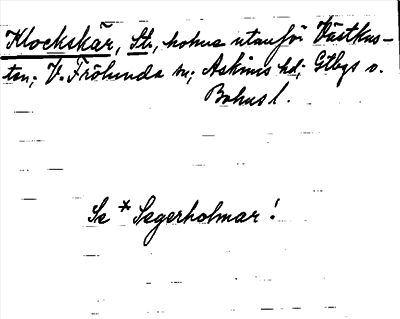 Klockskär, Str., holme utanför Västkus-
ten; V. Frölunda sn; Askims hd; Gtbgs o.
Bohusl.
Se *Segerholmar!